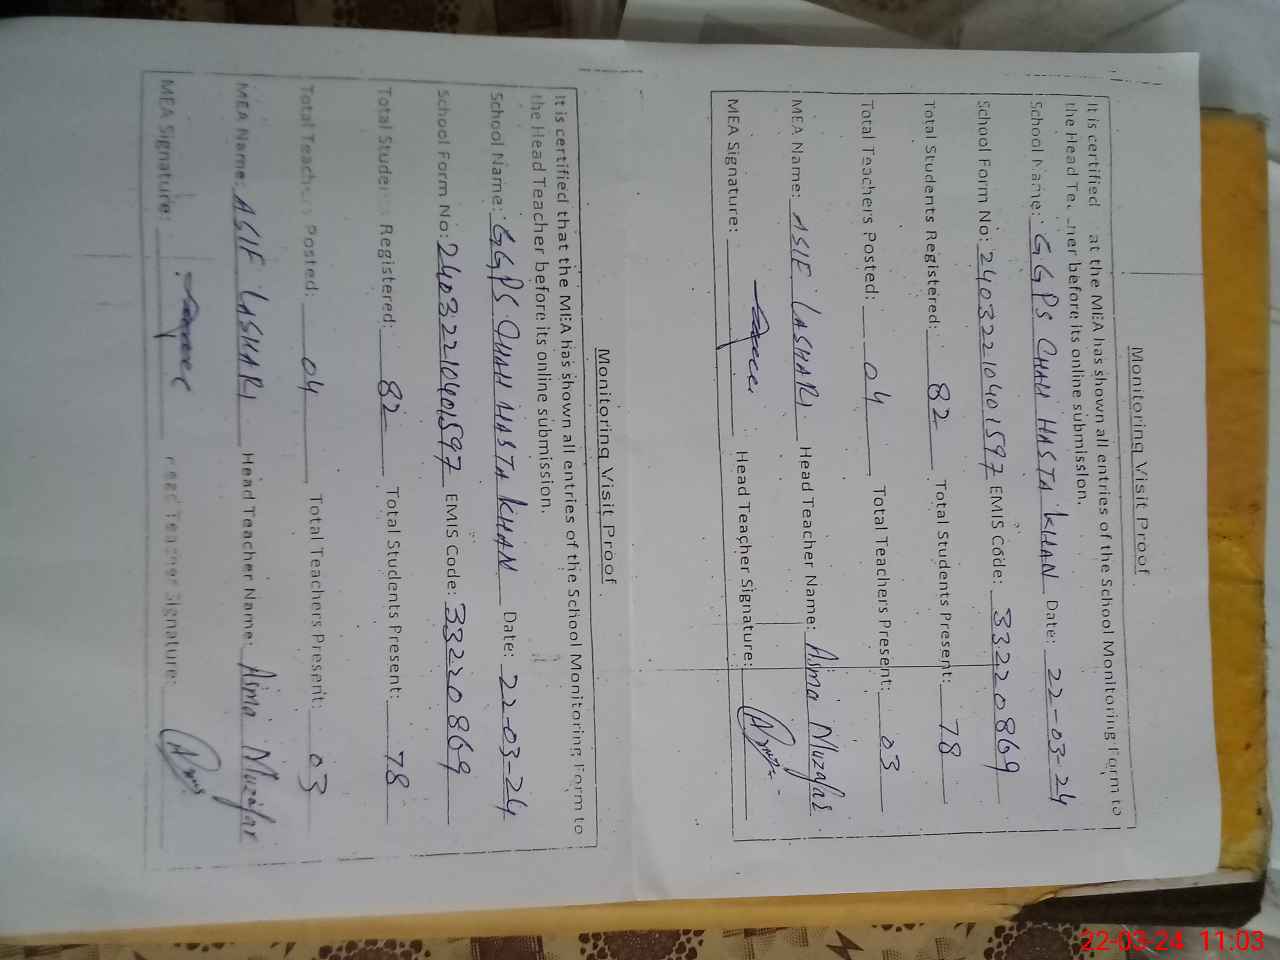 Monitoring Visit Proof
It is certified at the MEA has shown all entries of the School Monitoring Form to
the Head Te. ner before its online submission.
School Name: GGPS CHAH HASTA KHAN Date: 22-03-24
School Form No: 2403221040 1597 EMIS Code: 33220869
Total Students Registered: 82 Total Students Present: 78
Total Teachers Posted: 04 Total Teachers Present: 03
MEA Name: ASIF LASHARI Head Teacher Name: Asma Muzafar
MEA Signature: Head Teacher Signature:
Monitoring Visit Proof
It is certified that the MEA has shown all entries of the School Monitoring Form to
the Head Teacher before its online submission.
School Name: GGPS CHAH HASTA KHAN Date: 22-03-24
School Form No: 24032210401597 EMIS Code: 33220869
Total Students Registered: 82 Total Students Present: 78
Total Teachers Posted: 04 Total Teachers Present: 03
MEA Name: ASIF LASHARI Head Teacher Name: Asma Muzafar
MEA Signature: Head Teacher Signature:
22-03-24 11:03